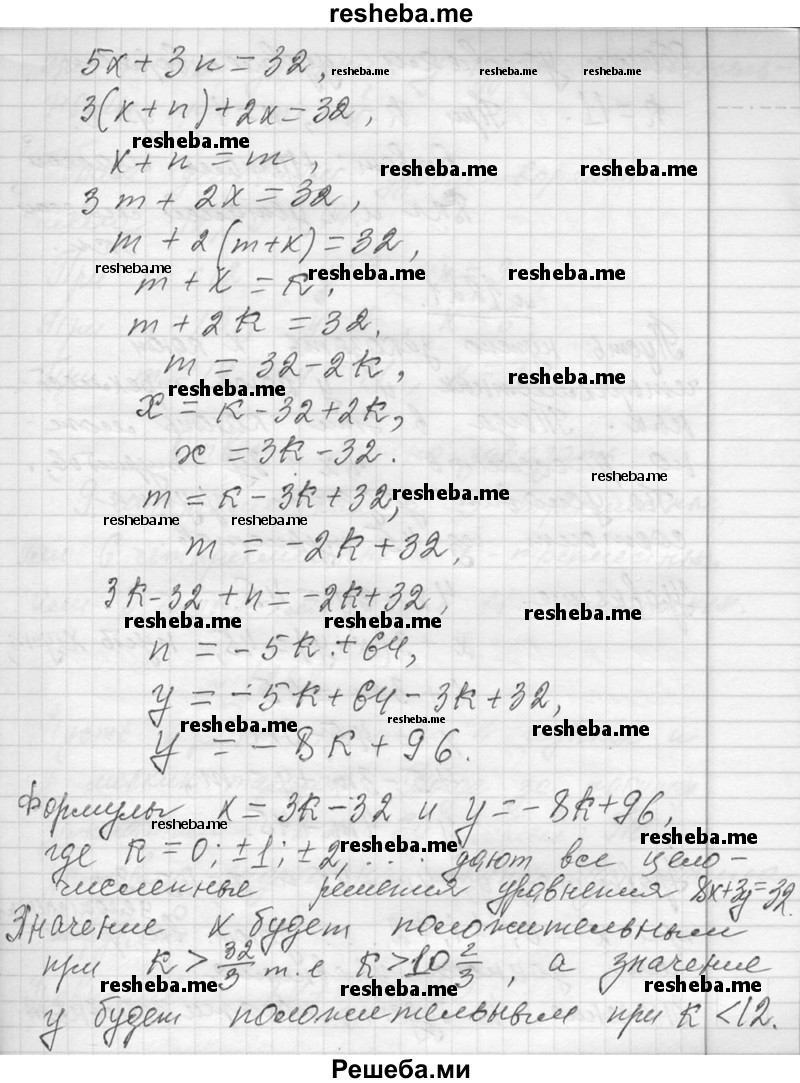 resheba.me
5x + 3n = 32, resheba.me resheba.me resheba.me
3(x + n) + 2x = 32,
resheba.me
x + n = m, resheba.me resheba.me
3m + 2x = 32,
m + 2(m + x) = 32,
resheba.me resheba.me resheba.me
m + x = k,
m + 2k = 32.
m = 32 - 2k, resheba.me
resheba.me
x = k - 32 + 2k,
x = 3k - 32.
resheba.me
m = k - 3k + 32, resheba.me
resheba.me resheba.me
m = -2k + 32,
3k - 32 + n = -2k + 32,
resheba.me resheba.me resheba.me
n = -5k + 64,
y = -5k + 64 - 3k + 32,
resheba.me resheba.me resheba.me
y = -8k + 96.
Формулы x = 3k - 32 и y = -8k + 96,
resheba.me resheba.me resheba.me
где k = 0; ±1; ±2, ... дают все цело-
численные решения уравнения 8x+3y=32.
Значение x будет положительным
при k > 32/3 т.е k > 10 2/3, а значение
resheba.me resheba.me resheba.me
y будет положительным при k < 12.
Решеба.ми